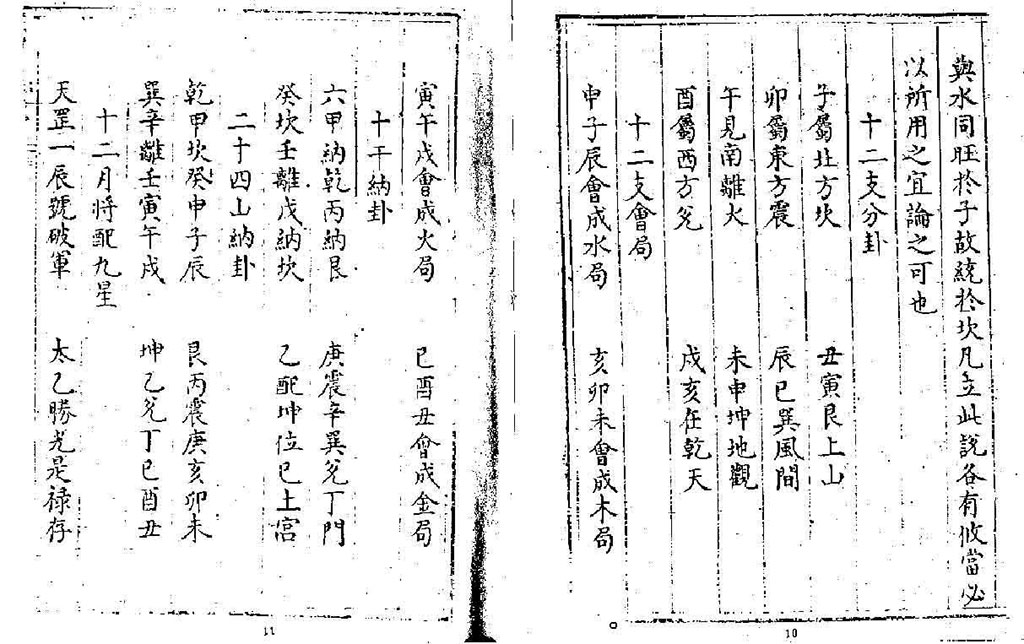 與水同旺於子故統於坎凡立此說各有攸當必
以所用之宜論之可也
十二支分卦
子屬北方坎　丑寅艮上山
卯屬東方震　辰巳巽風間
午見南離火　未申坤地觀
酉屬西方兌　戌亥在乾天
十二支會局
申子辰會成水局　亥卯未會成木局
10
寅午戌會成火局　巳酉丑會成金局
十干納卦
六甲納乾丙納艮　庚震辛巽兌丁門
癸坎壬離戊納坎　乙配坤位己土宮
二十四山納卦
乾甲坎癸申子辰　艮丙震庚亥卯未
巽辛離壬寅午戌　坤乙兌丁巳酉丑
十二月將配九星
天罡一辰號破軍　太乙勝光是祿存
11